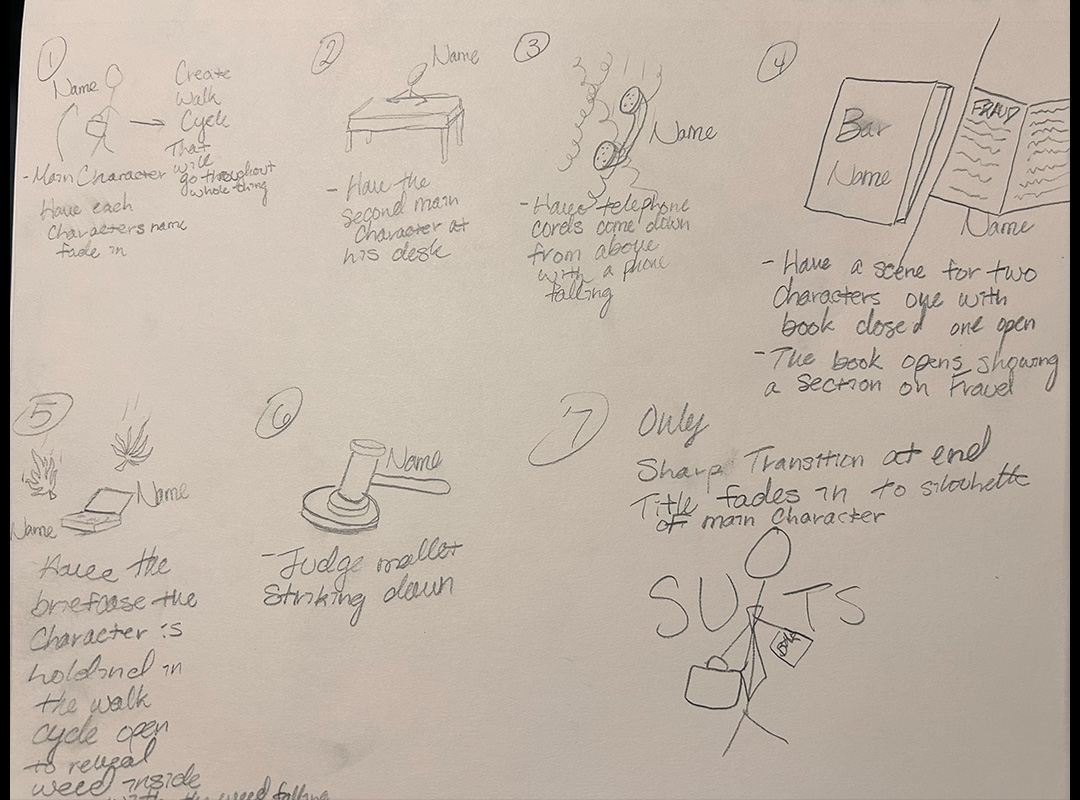 1
Name
Create
Walk
Cycle
That
will
go throughout
whole thing
- Main Character
Have each
characters name
fade in
2
Name
- Have the
second main
character at
his desk
3
Name
- Have telephone
cords come down
from above
with a phone
falling
4
Bar
Name
FRAUD
Name
- Have a scene for two
characters one with
book closed one open
- The book opens showing
a section on Fraud
5
Name
Name
Have the
briefcase the
character is
holdind in
the walk
cycle open
to reveal
weed inside
with the weed falling
6
Name
- Judge mallet
Striking down
7
Only
Sharp Transition at end
Title fades in to silouhette
of main character
SU TS